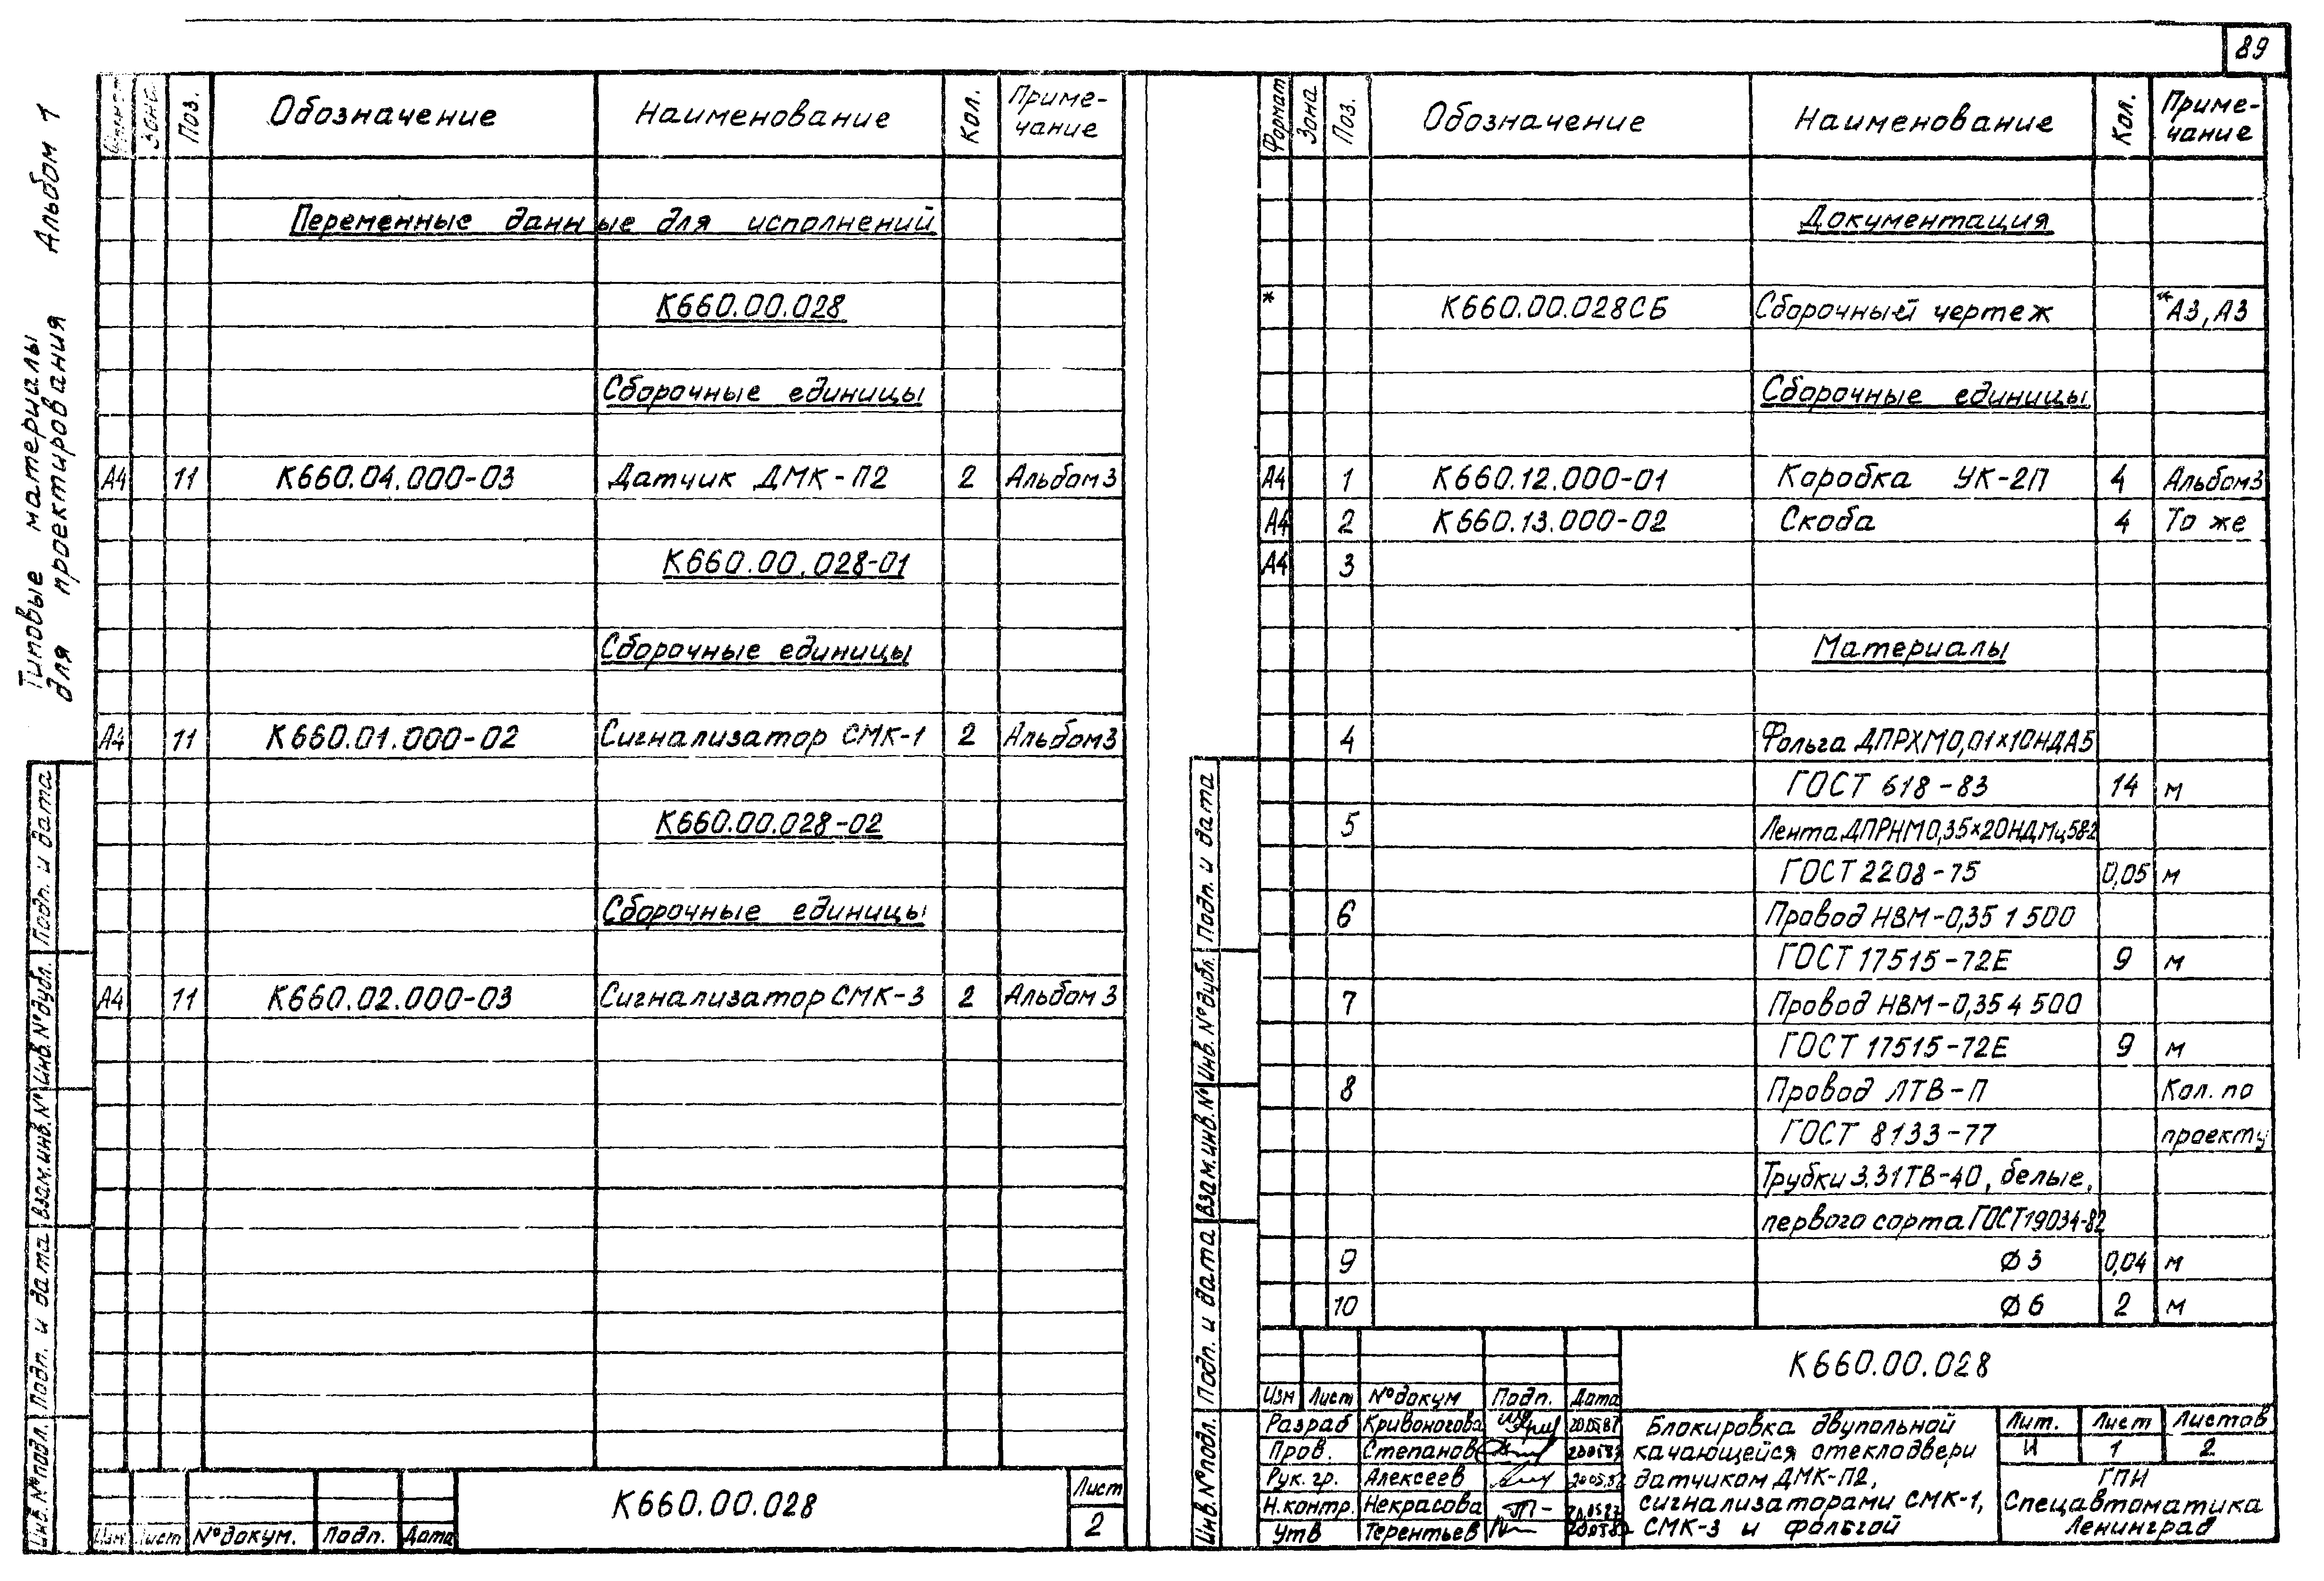 89
Типовые материалы для проектирования Альбом 1
Поз. Обозначение Наименование Кол. Приме-
чание
Переменные данные для исполнений
К660.00.028
Сборочные единицы
А4 11 К660.04.000-03 Датчик ДМК-П2 2 Альбом 3
К660.00.028-01
Сборочные единицы
А4 11 К660.01.000-02 Сигнализатор СМК-1 2 Альбом 3
К660.00.028-02
Сборочные единицы
А4 11 К660.02.000-03 Сигнализатор СМК-3 2 Альбом 3
Инв.№подл. Подп. и дата Взам.инв.№ Инв.№дубл. Подп. и дата
К660.00.028
Лист
2
Изм Лист №докум. Подп. Дата
Формат Зона Поз. Обозначение Наименование Кол. Приме-
чание
Документация
* К660.00.028СБ Сборочный чертеж *А3, А3
Сборочные единицы
А4 1 К660.12.000-01 Коробка УК-2П 4 Альбом3
А4 2 К660.13.000-02 Скоба 4 То же
А4 3
Материалы
4 Фольга ДПРХМ0,01×10НДА5
ГОСТ 618-83 14 м
5 Лента ДПРНМ0,35×20НДМц58-2
ГОСТ 2208-75 0,05 м
6 Провод НВМ-0,35 1 500
ГОСТ 17515-72Е 9 м
7 Провод НВМ-0,35 4 500
ГОСТ 17515-72Е 9 м
8 Провод ЛТВ-П Кол. по
ГОСТ 8133-77 проекту
Трубки 3.31ТВ-40, белые,
первого сорта ГОСТ19034-82
9 Ø3 0,04 м
10 Ø6 2 м
Инв.№подл. Подп. и дата Взам.инв.№ Инв.№дубл. Подп. и дата
К660.00.028
Изм Лист №докум Подп. Дата
Разраб Кривоногова 20.05.87
Пров. Степанов 20.05.87
Рук. гр. Алексеев
Н.контр. Некрасова
Утв Терентьев
Блокировка двупольной
качающейся стеклодвери
датчиком ДМК-П2,
сигнализаторами СМК-1,
СМК-3 и фольгой
Лит. Лист Листов
И 1 2
ГПИ
Спецавтоматика
Ленинград